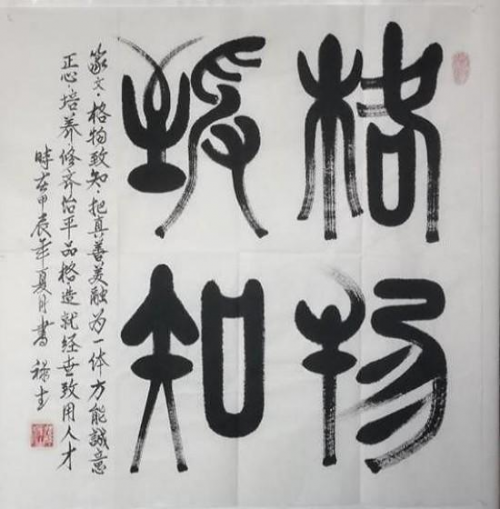 格物
致知
篆文·格物致知·把真善美融为一体方能誠意
正心·培养·修齐治平品格造就经世致用人才
時在甲辰年夏月書